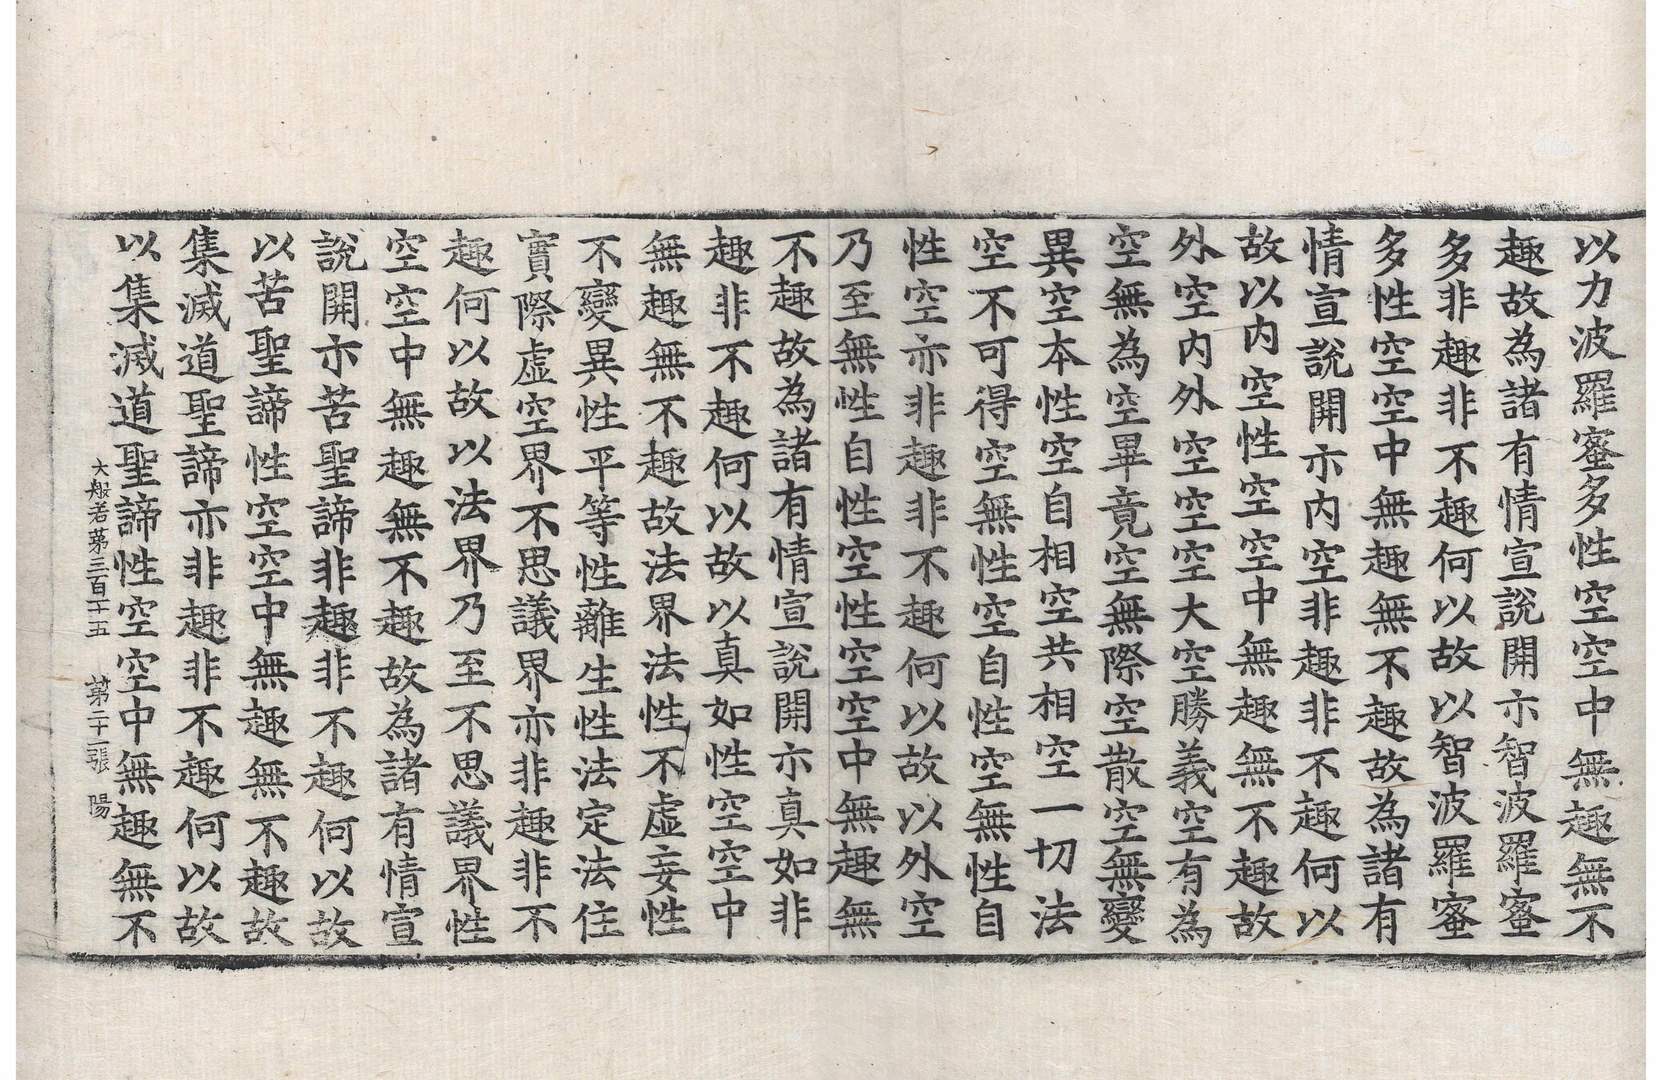 以力波羅蜜多性空空中無趣無不
趣故為諸有情宣說開示智波羅蜜
多非趣非不趣何以故以智波羅蜜
多性空空中無趣無不趣故為諸有
情宣說開示内空非趣非不趣何以
故以内空性空空中無趣無不趣故
外空内外空空空大空勝義空有為
空無為空畢竟空無際空散空無變
異空本性空自相空共相空一切法
空不可得空無性空自性空無性自
性空亦非趣非不趣何以故以外空
乃至無性自性空性空空中無趣無
不趣故為諸有情宣說開示真如非
趣非不趣何以故以真如性空空中
無趣無不趣故法界法性不虛妄性
不變異性平等性離生性法定法住
實際虛空界不思議界亦非趣非不
趣何以故以法界乃至不思議界性
空空中無趣無不趣故為諸有情宣
說開示苦聖諦非趣非不趣何以故
以苦聖諦性空空中無趣無不趣故
集滅道聖諦亦非趣非不趣何以故
以集滅道聖諦性空空中無趣無不
大般若苐三百十五 苐二十二張 陽